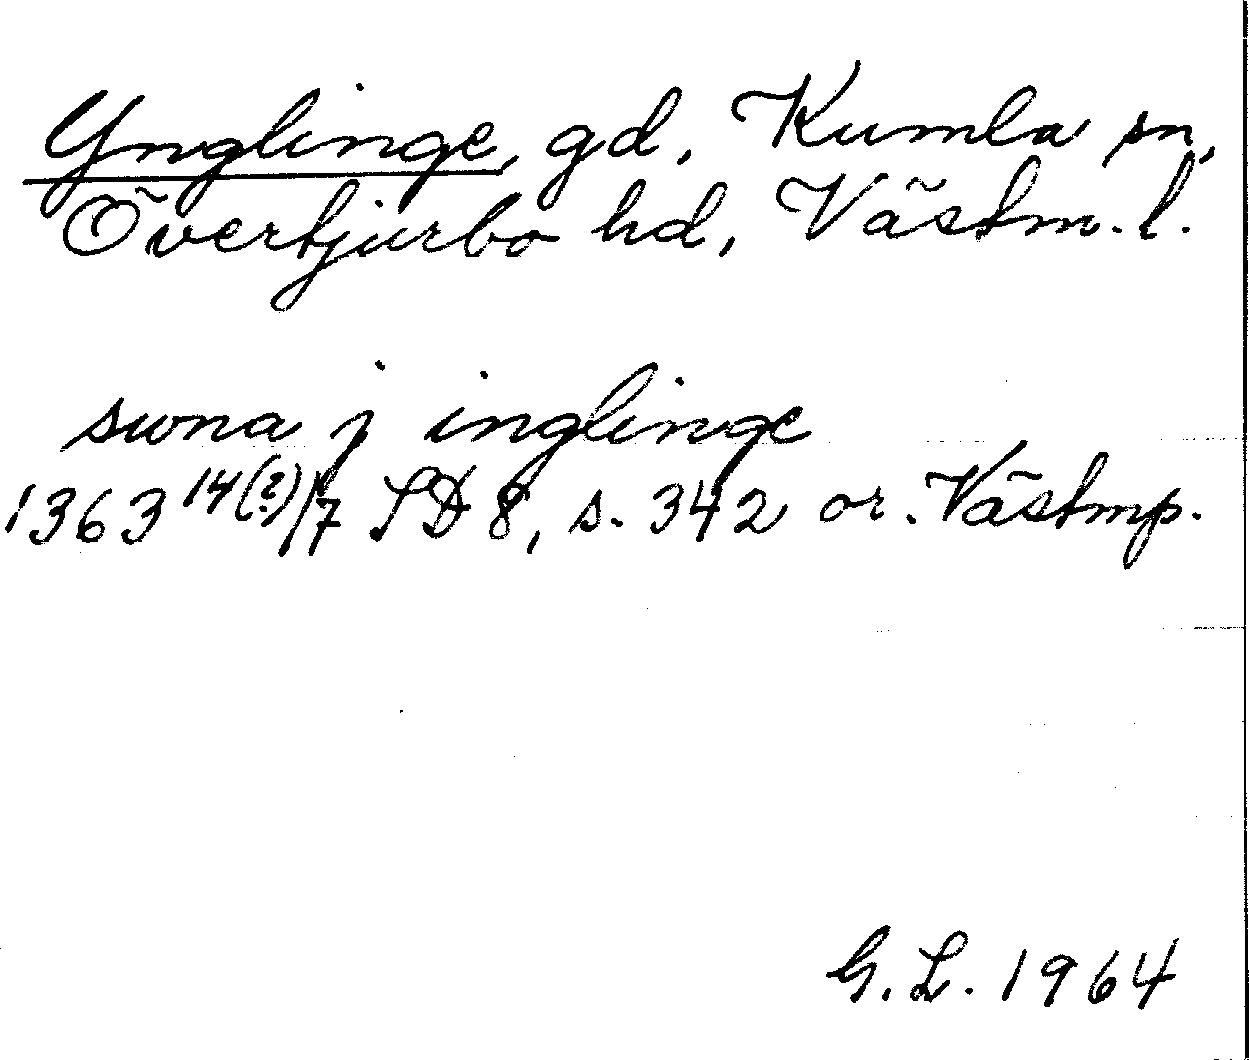 Ynglinge, gd, Kumla sn,
Övertjurbo hd, Västm. l.
swna j inglinge
1363 14(?)/7 SD 8, s. 342 or. Västmp.
G. L. 1964